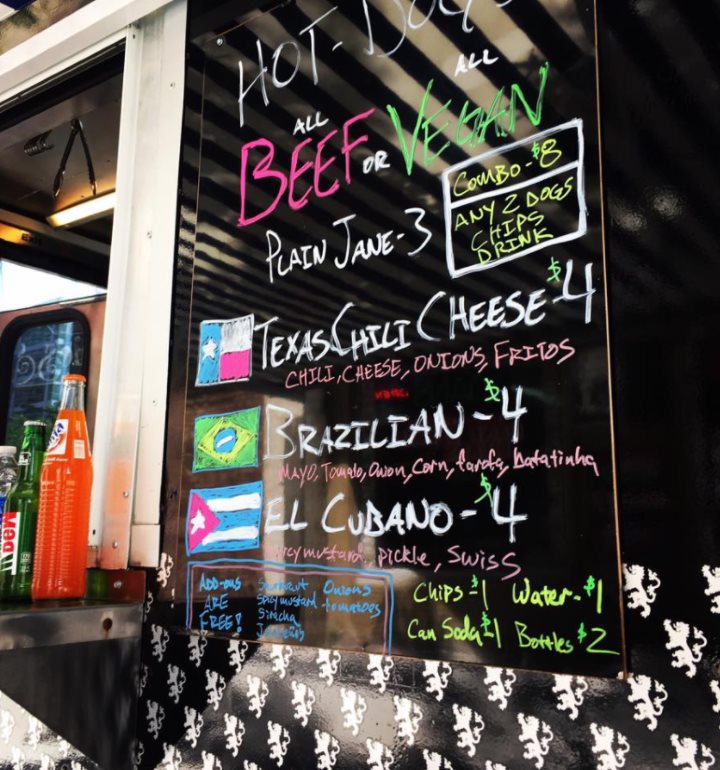 HOT-DOGS
ALL BEEF OR ALL VEGAN
COMBO-$8
ANY 2 DOGS
CHIPS
DRINK
PLAIN JANE-3
TEXAS CHILI CHEESE-$4
CHILI, CHEESE, ONIONS, FRITOS
BRAZILIAN-$4
MAYO, Tomato, Onion, Corn, farofa, batatinha
EL CUBANO-$4
mustard, pickle, SWISS
ADD-ONS
ARE
FREE!
Onions
Spicy mustard tomatoes
Siracha
Chips-$1 Water-$1
Can Soda $1 Bottles $2
EXIT